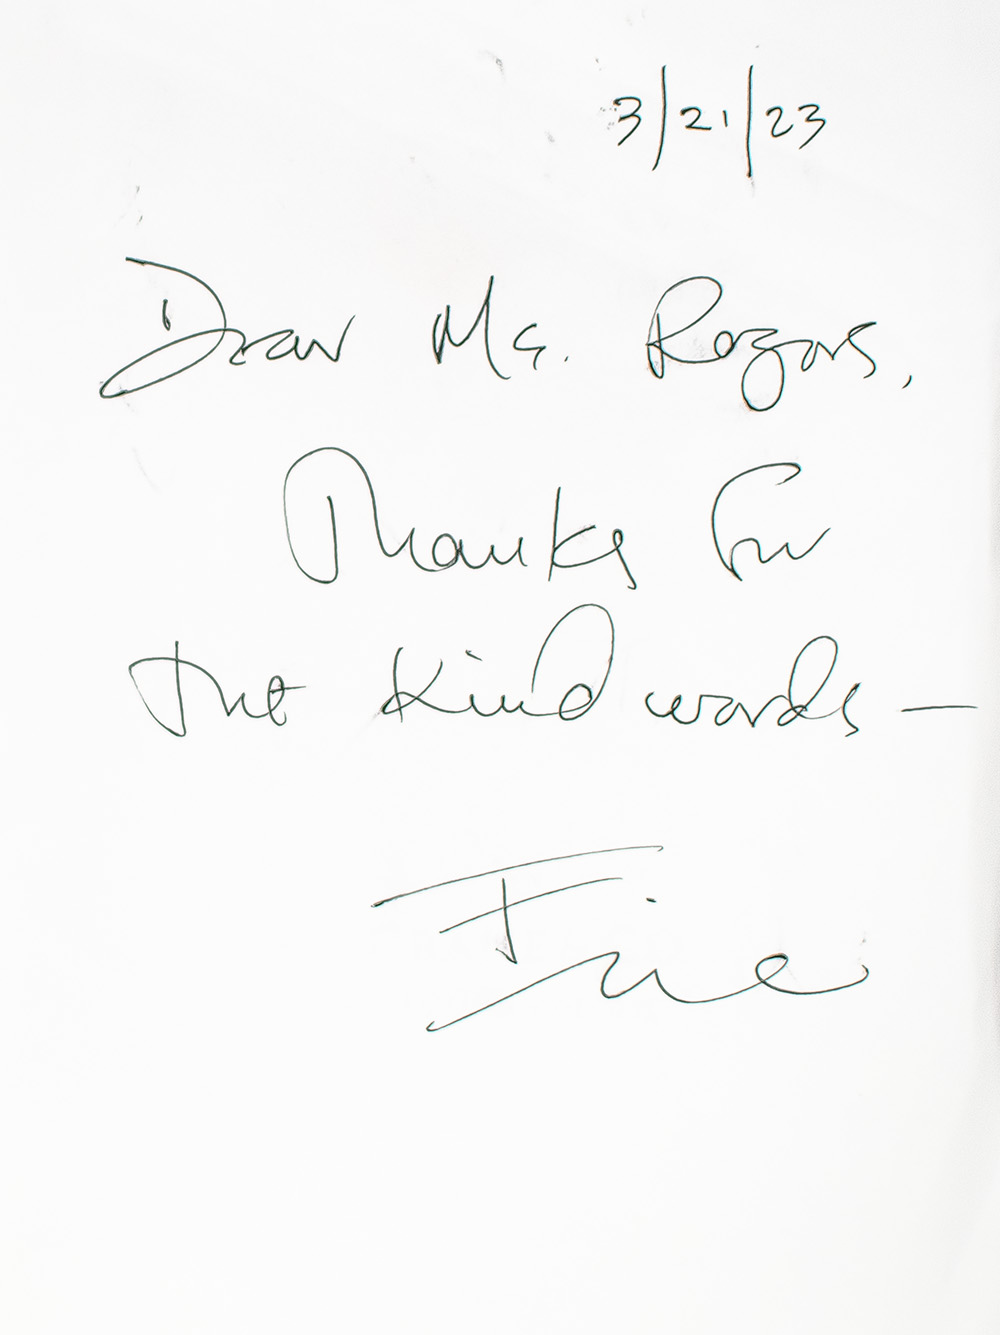 3/21/23
Dear Ms. Rogers,
Thanks for
the kind words —